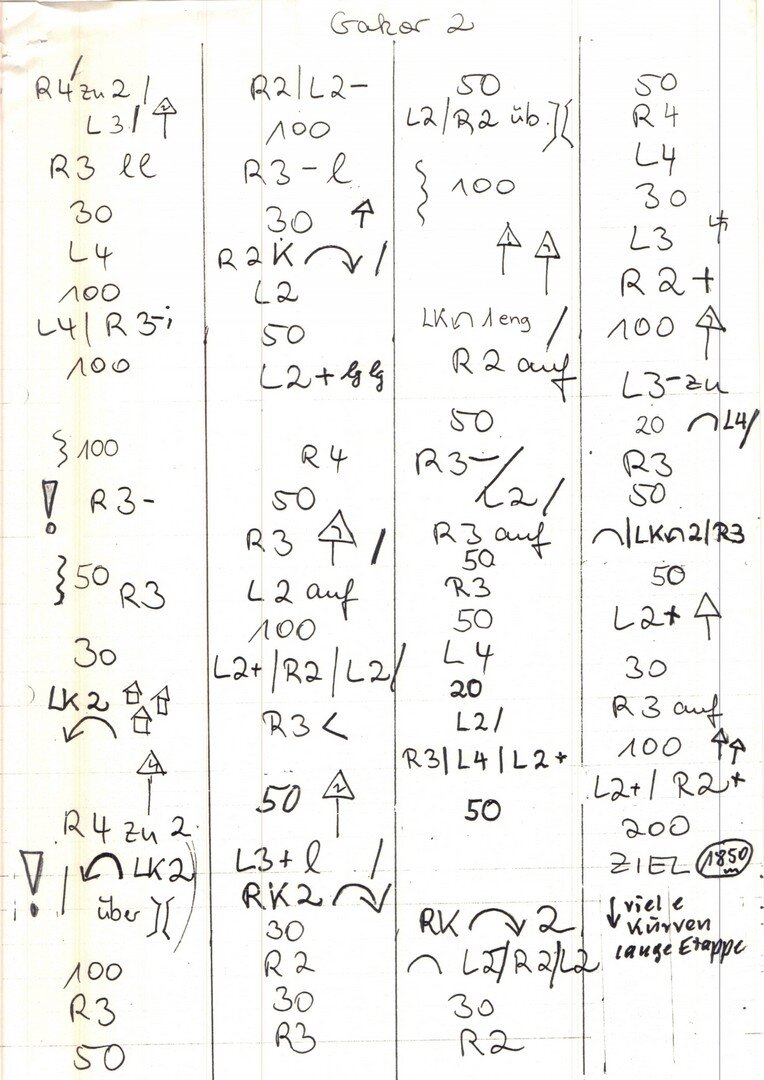 Gakor 2
R4 zu 2 /
L3 /
R3 ll
30
L4
100
L4 / R3-i
100
100
! R3-
50 R3
30
LK2
4
R4 zu 2
! / LK2
über )(
100
R3
50
R2 / L2-
100
R3 - l
30
R2K /
L2
50
L2 + lg lg
R4
50
R3 /
L2 auf
100
L2+ / R2 / L2 /
R3 <
50
L3 + l /
RK2
30
R2
30
R3
50
L2 / R2 üb. )(
100
LK 1 eng /
R2 auf
50
R3- /
L2 /
R3 auf
50
R3
50
L4
20
L2 /
R3 / L4 / L2+
50
RK 2
L2 / R2 / L2
30
R2
50
R4
L4
30
L3
R2 +
100
L3- zu
20 L4 /
R3
50
/ LK 2 / R3
50
L2+
30
R3 auf
100
L2+ / R2+
200
ZIEL 1850 m
viele
Kurven
lange Etappe